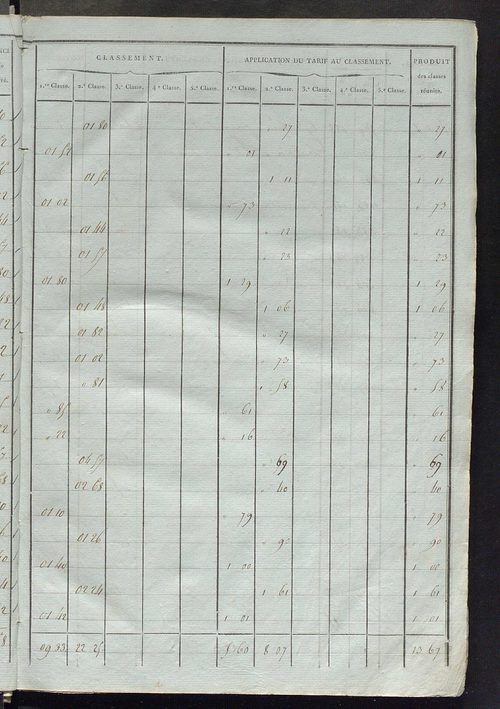 CLASSEMENT. APPLICATION DU TARIF AU CLASSEMENT. PRODUIT
des classes
réunies.
1.re Classe. 2.e Classe. 3.e Classe. 4.e Classe. 5.e Classe. 1.re Classe. 2.e Classe. 3.e Classe. 4.e Classe. 5.e Classe.
01 80 " 27 " 27
01 " 01 " 01
1 11 1 11
01 02 " 73 " 73
01 44 " 12 " 12
01 57 " 23 " 23
01 80 1 29 1 29
01 48 1 06 1 06
01 82 " 27 " 27
01 02 " 73 " 73
" 81 " 58 " 58
" 85 " 61 " 61
" 22 " 16 " 16
04 57 " 69 " 69
02 68 " 40 " 40
01 10 " 79 " 79
01 26 " 90 " 90
01 40 1 00 1 00
02 24 1 61 1 61
01 42 1 01 1 01
09 33 22 8 07 13 67